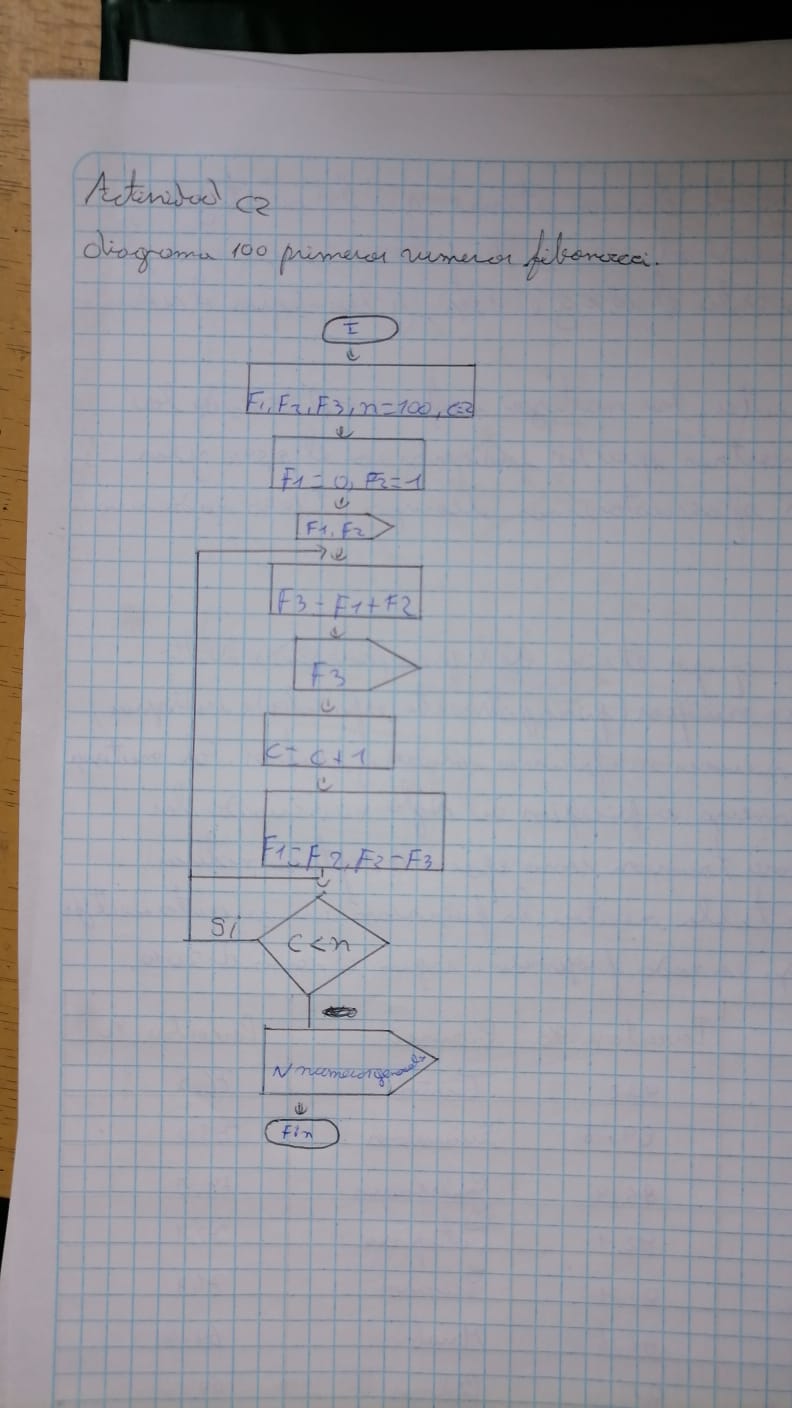 Actividad C2
diagrama 100 primeros numeros fibonacci.
I
F1, F2, F3, n=100, c=2
F1 = 0, F2=1
F1, F2
F3 = F1+F2
F3
C= C+1
F1=F2, F2=F3
Si
C<n
N numeros
Fin